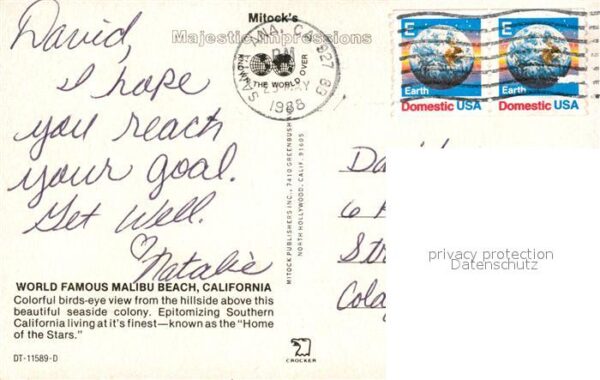 Mitock's
Majestic Impressions
KNOWN THE WORLD OVER
SANTA ANA, CA 927 83
PM
25 MAY
1988
E
Earth
Domestic USA
E
Earth
Domestic USA
David,
I hope
you reach
your goal.
Get Well.
♡Natalie
WORLD FAMOUS MALIBU BEACH, CALIFORNIA
Colorful birds-eye view from the hillside above this
beautiful seaside colony. Epitomizing Southern
California living at it's finest—known as the "Home
of the Stars."
DT-11589-D
MITOCK PUBLISHERS INC., 7410 GREENBUSH
NORTH HOLLYWOOD, CALIF. 91605
CROCKER
Da
6
Str
Cola
privacy protection
Datenschutz